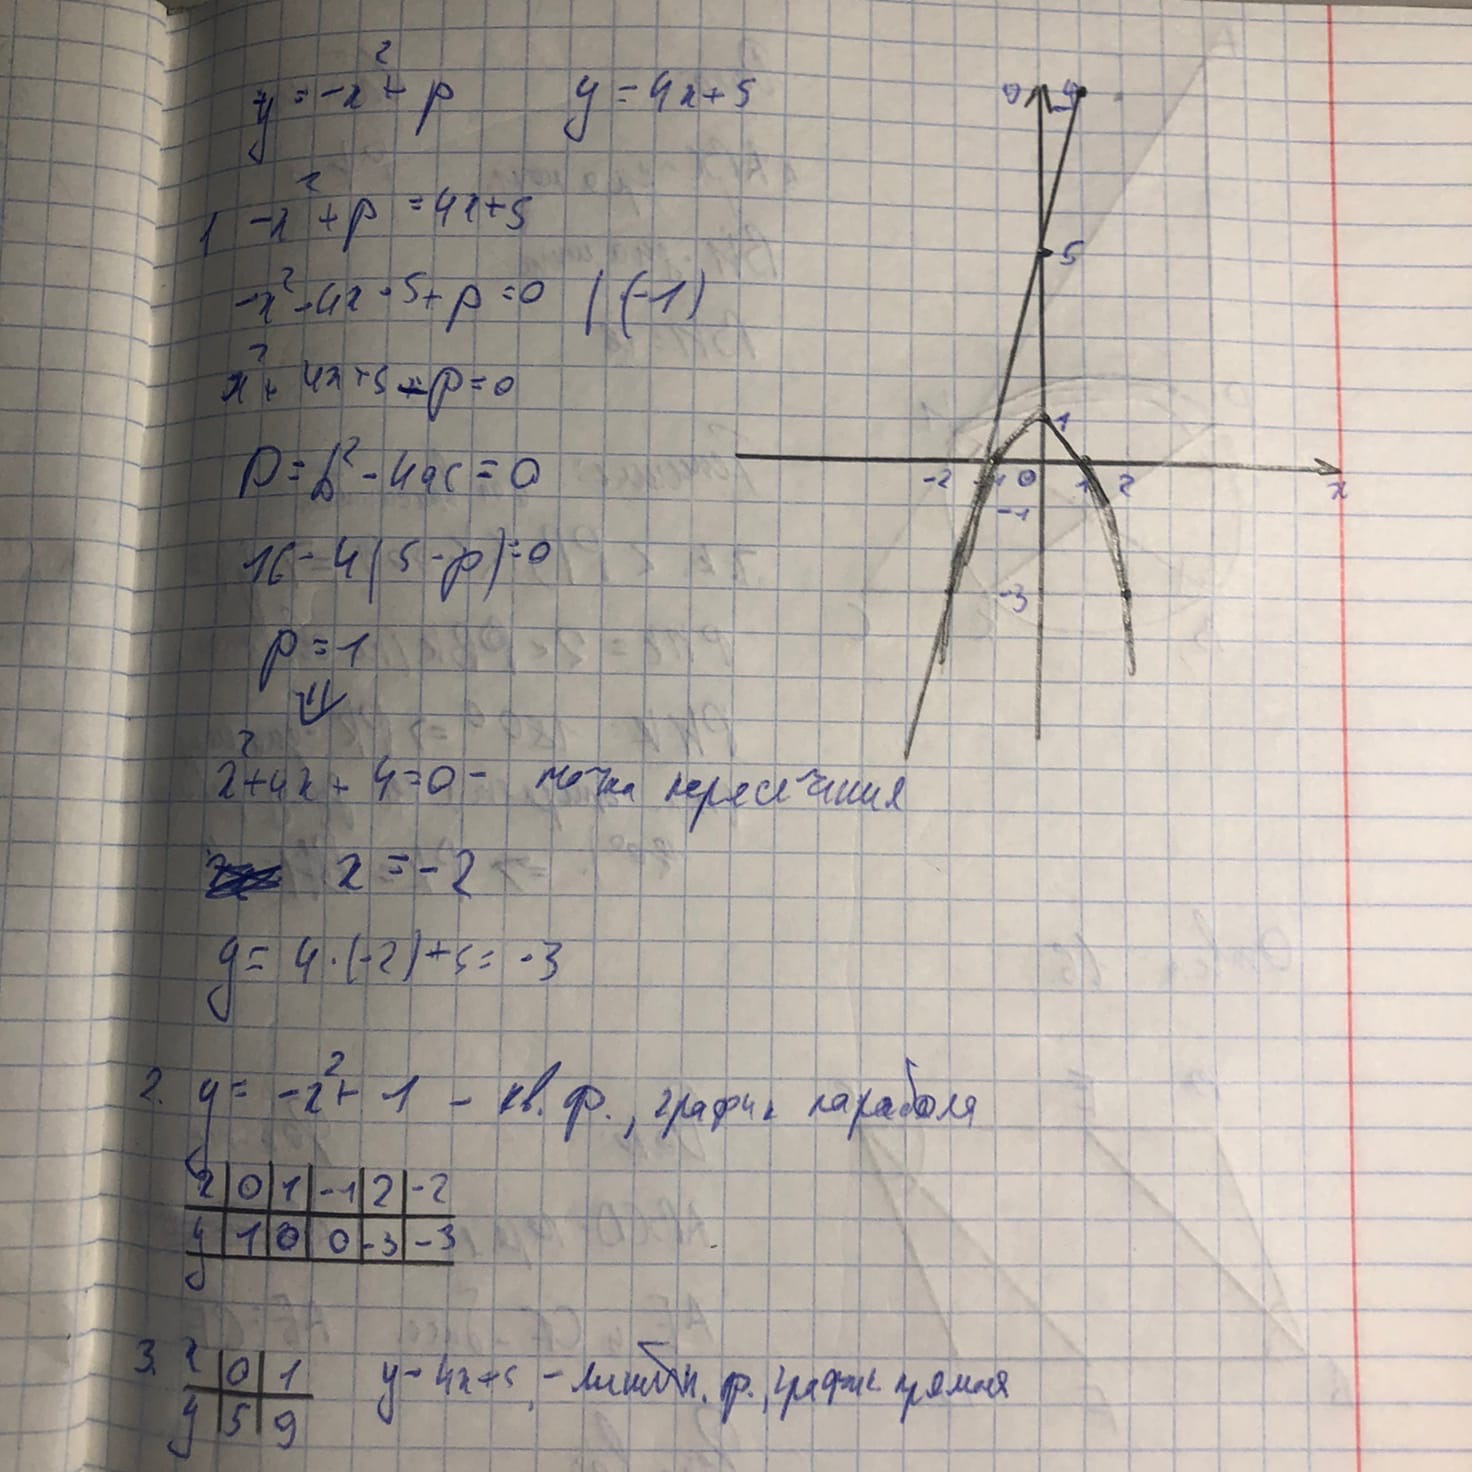 y = -x² + p    y = 4x+5
1 -x² + p = 4x+5
-x² - 4x - 5 + p = 0 | (-1)
x² + 4x + 5 - p = 0
D = b² - 4ac = 0
16 - 4(5 - p) = 0
p = 1
⇓
x² + 4x + 4 = 0 - точка пересечения
x = -2
y = 4·(-2)+5 = -3
2. y = -x² + 1 - кв. ф., график парабола
x | 0 | 1 | -1 | 2 | -2
y | 1 | 0 | 0 | -3 | -3
3. x | 0 | 1    y = 4x+5, - линейн. ф., график прямая
y | 5 | 9
9 y
5
1
-2 -1 0 1 2 x
-1
-3